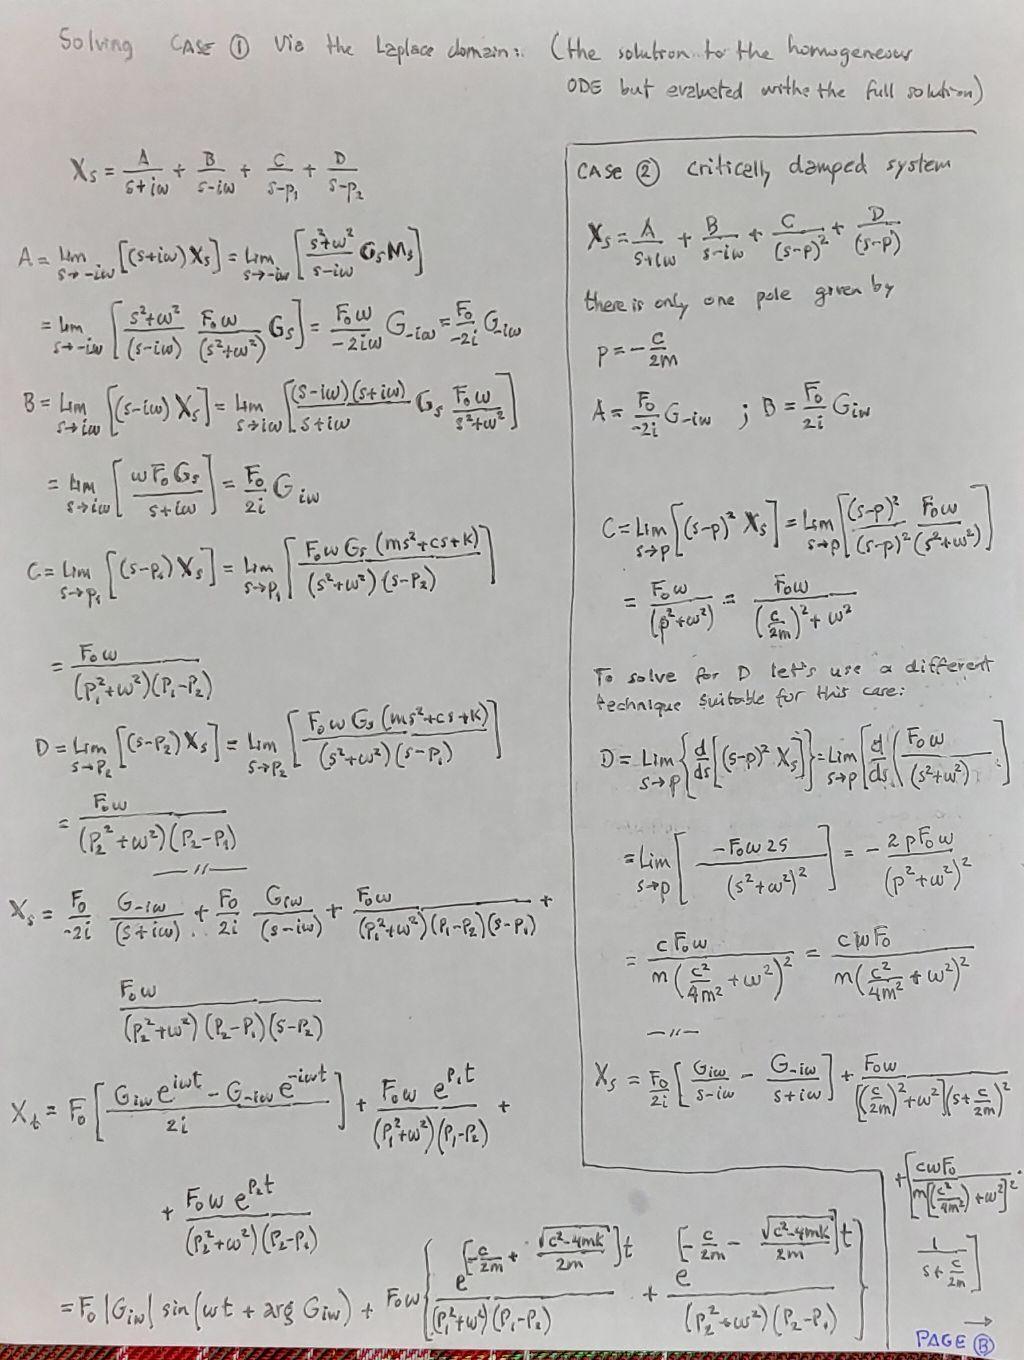 Solving CASE ① Via the Laplace domain: (the solution to the homogeneous
ODE but evaluated withe the full solution)
Xs = A/(s+iω) + B/(s-iω) + C/(s-p₁) + D/(s-p₂)
A = Lim s→-iω [(s+iω) Xs] = Lim s→-iω [(s²+ω²)/(s-iω) Gs Ms]
= Lim s→-iω [(s²+ω²)/(s-iω) F₀ω/(s²+ω²) Gs] = F₀ω/(-2iω) G-iω = F₀/(-2i) G-iω
B = Lim s→iω [(s-iω) Xs] = Lim s→iω [(s-iω)(s+iω)/(s+iω) Gs F₀ω/(s²+ω²)]
= Lim s→iω [ωF₀Gs/(s+iω)] = F₀/2i Giω
C = Lim s→p₁ [(s-p₁) Xs] = Lim s→p₁ [F₀ω Gs (ms²+cs+k)/((s²+ω²)(s-p₂))]
= F₀ω/((p₁²+ω²)(p₁-p₂))
D = Lim s→p₂ [(s-p₂) Xs] = Lim s→p₂ [F₀ω Gs (ms²+cs+k)/((s²+ω²)(s-p₁))]
= F₀ω/((p₂²+ω²)(p₂-p₁))
—//—
Xs = F₀/(-2i) G-iω/(s+iω) + F₀/2i Giω/(s-iω) + F₀ω/((p₁²+ω²)(p₁-p₂)(s-p₁)) +
F₀ω/((p₂²+ω²)(p₂-p₁)(s-p₂))
Xt = F₀ [(Giω e^(iωt) - G-iω e^(-iωt))/2i] + F₀ω e^(p₁t)/((p₁²+ω²)(p₁-p₂)) +
+ F₀ω e^(p₂t)/((p₂²+ω²)(p₂-p₁))
= F₀ |Giω| sin(ωt + arg Giω) + F₀ω {e^([-c/2m + √(c²-4mk)/2m]t)/((p₁²+ω²)(p₁-p₂)) + e^([-c/2m - √(c²-4mk)/2m]t)/((p₂²+ω²)(p₂-p₁))}
CASE ② critically damped system
Xs = A/(s+iω) + B/(s-iω) + C/(s-p)² + D/(s-p)
there is only one pole given by
p = -c/2m
A = F₀/(-2i) G-iω ; B = F₀/2i Giω
C = Lim s→p [(s-p)² Xs] = Lim s→p [(s-p)²/(s-p)² F₀ω/(s²+ω²)]
= F₀ω/(p²+ω²) = F₀ω/((c/2m)²+ω²)
To solve for D let's use a different
technique suitable for this case:
D = Lim s→p {d/ds [(s-p)² Xs]} = Lim s→p [d/ds (F₀ω/(s²+ω²))]
= Lim s→p [-F₀ω2s/(s²+ω²)²] = -2pF₀ω/(p²+ω²)²
= cF₀ω/(m(c²/4m² + ω²)²) = cωF₀/(m(c²/4m² + ω²)²)
—//—
Xs = F₀/2i [Giω/(s-iω) - G-iω/(s+iω)] + F₀ω/([(c/2m)²+ω²](s+c/2m)²)
+ [cωF₀/(m[(c²/4m²)+ω²]²) ·
1/(s+c/2m)]
→
PAGE Ⓑ